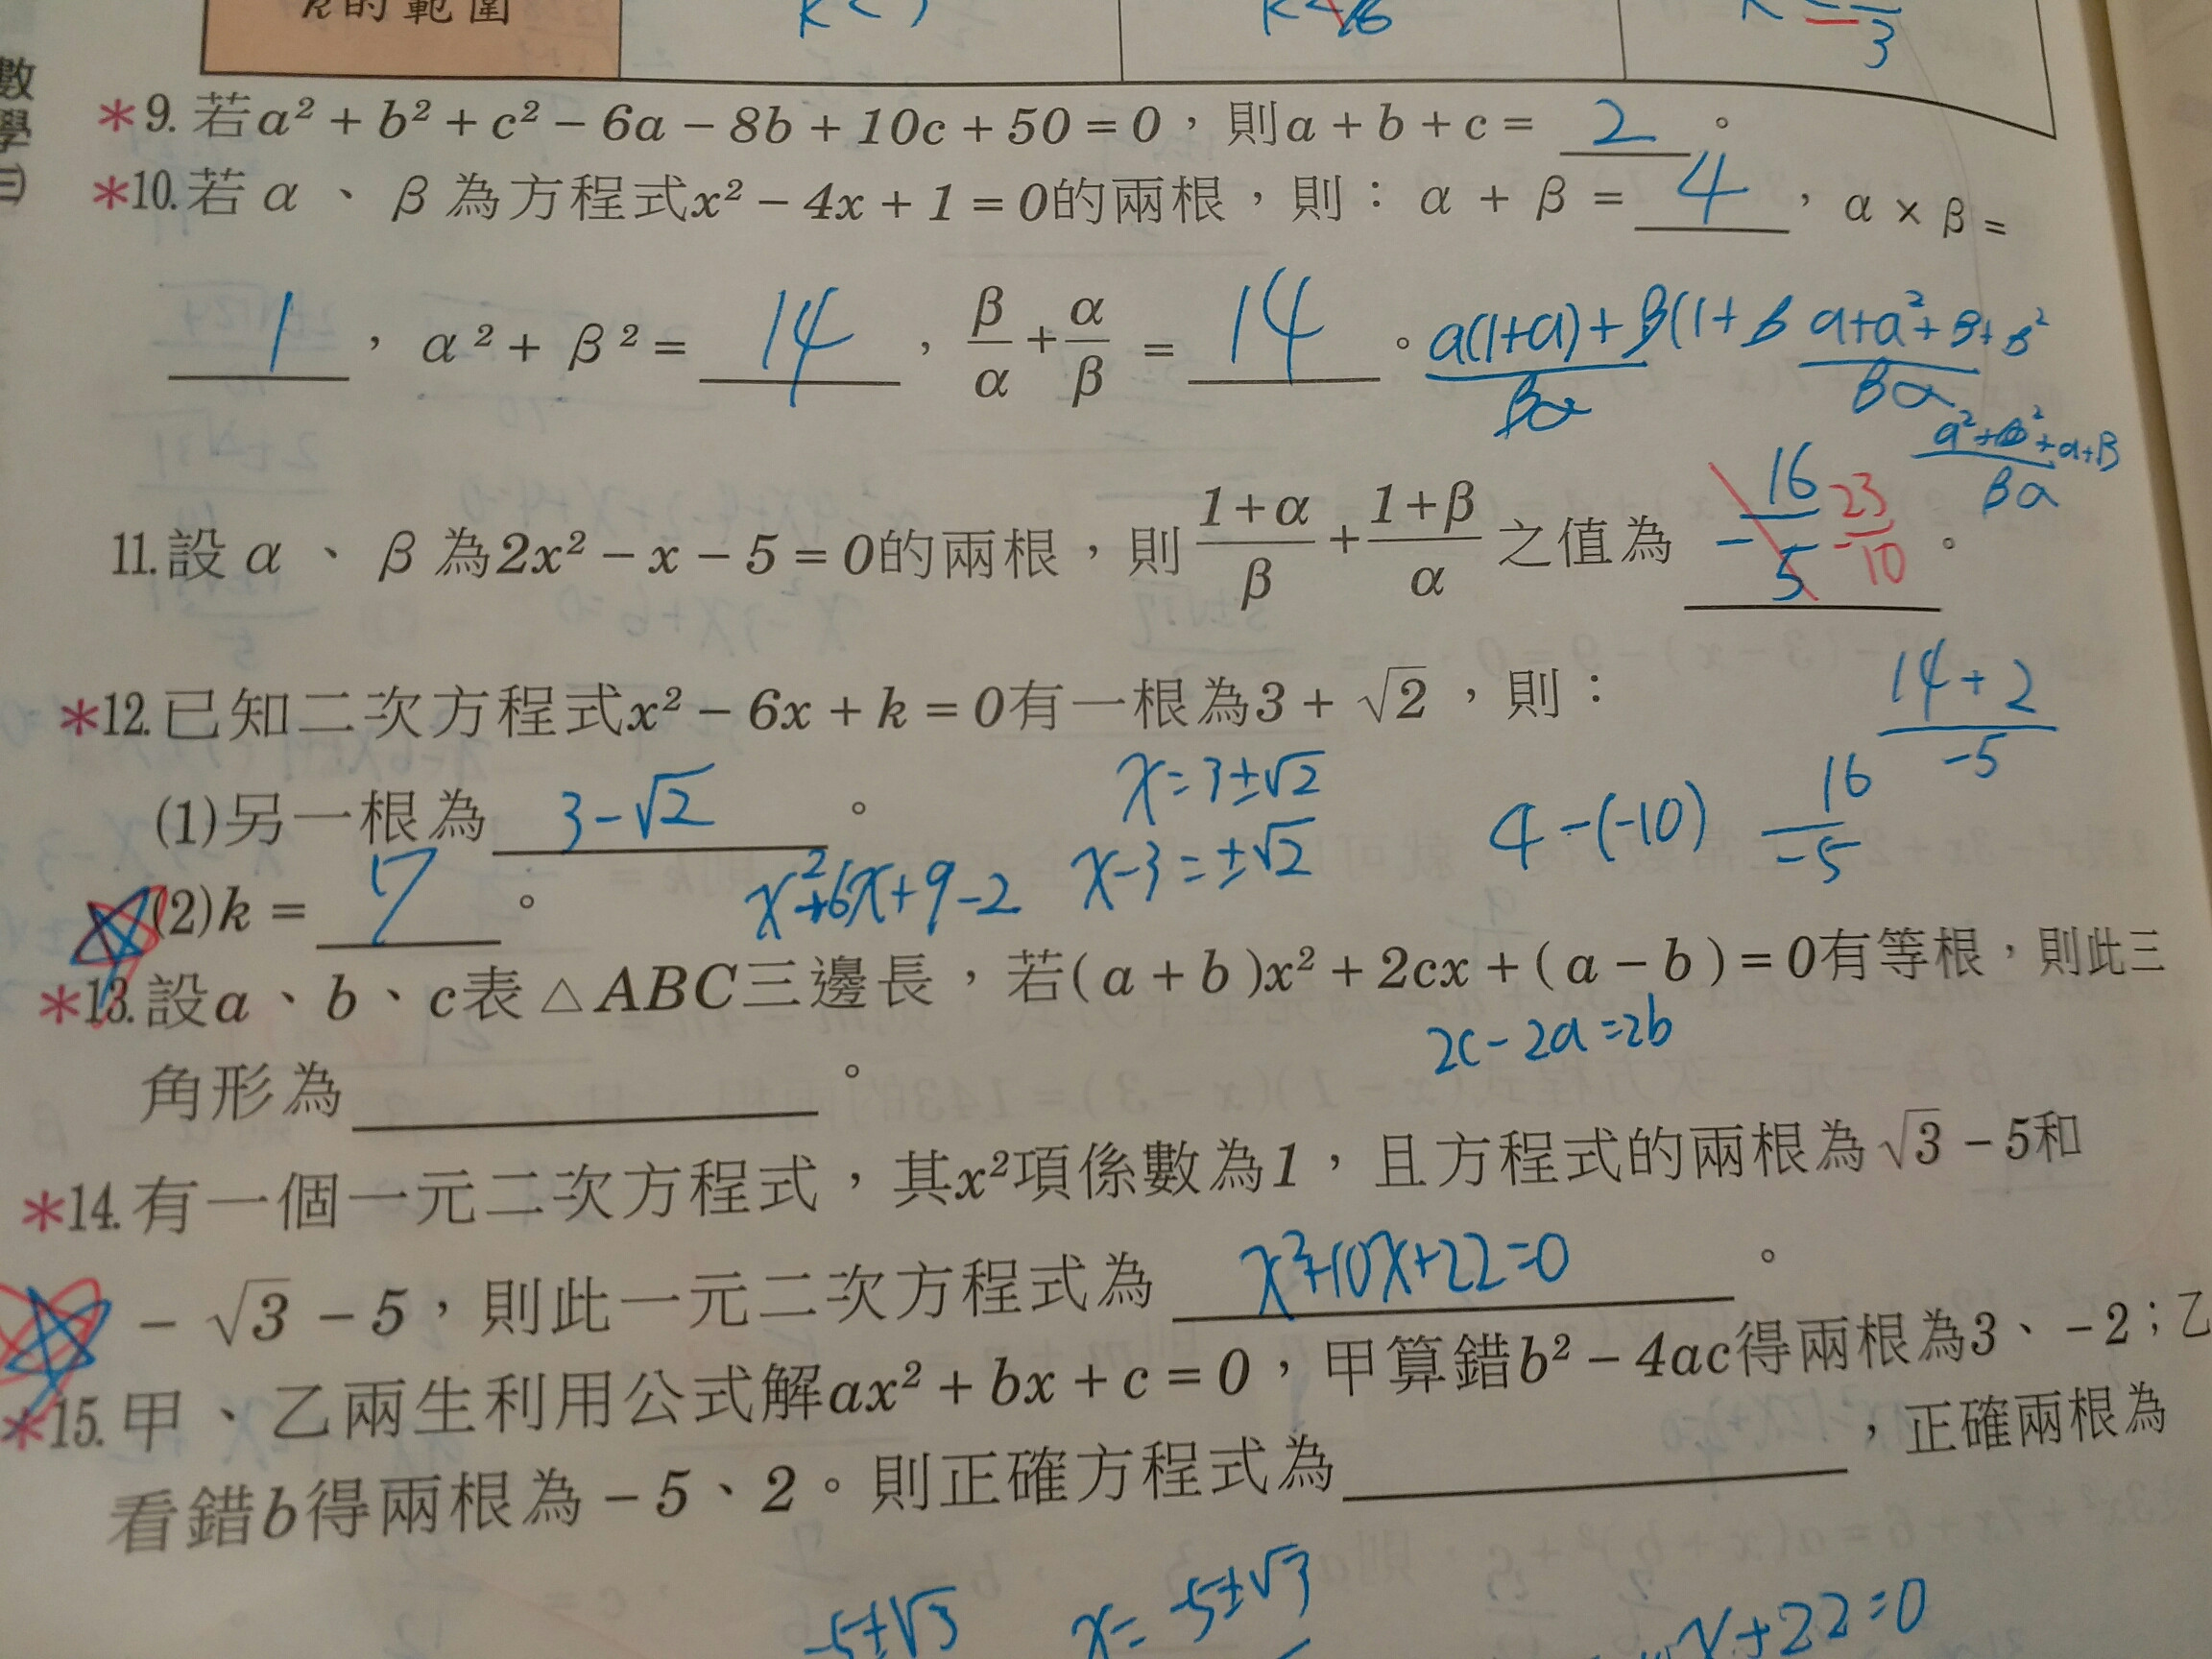 k的範圍
數學㈢
*9. 若a² + b² + c² − 6a − 8b + 10c + 50 = 0，則a + b + c = 2 。
*10. 若 α 、 β 為方程式x² − 4x + 1 = 0的兩根，則：α + β = 4 ，α × β =
1 ，α² + β² = 14 ，β/α + α/β = 14 。
a(1+a)+β(1+β / βα
a+a²+β+β² / βα
a²+β²+a+β / βα
11. 設 α 、 β 為2x² − x − 5 = 0的兩根，則 (1+α)/β + (1+β)/α 之值為 -16/5 -23/10 。
14+2 / -5
*12. 已知二次方程式x² − 6x + k = 0有一根為3 + √2，則：
x=3±√2
(1)另一根為 3-√2 。
4-(-10) 16/-5
x-3=±√2
(2)k = 7 。
x²+6x+9-2
*13. 設a、b、c表△ABC三邊長，若(a + b)x² + 2cx + (a − b) = 0有等根，則此三
2c-2a=2b
角形為 。
*14. 有一個一元二次方程式，其x²項係數為1，且方程式的兩根為√3 − 5和
− √3 − 5，則此一元二次方程式為 x²+10x+22=0 。
*15. 甲、乙兩生利用公式解ax² + bx + c = 0，甲算錯b² − 4ac得兩根為3、−2；乙
看錯b得兩根為 − 5、2。則正確方程式為 ，正確兩根為
-5±√3 x= -5±√3 x+22=0